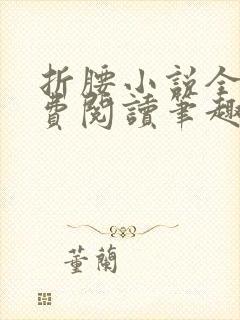 折腰小說全
費閱讀筆趣
董蘭